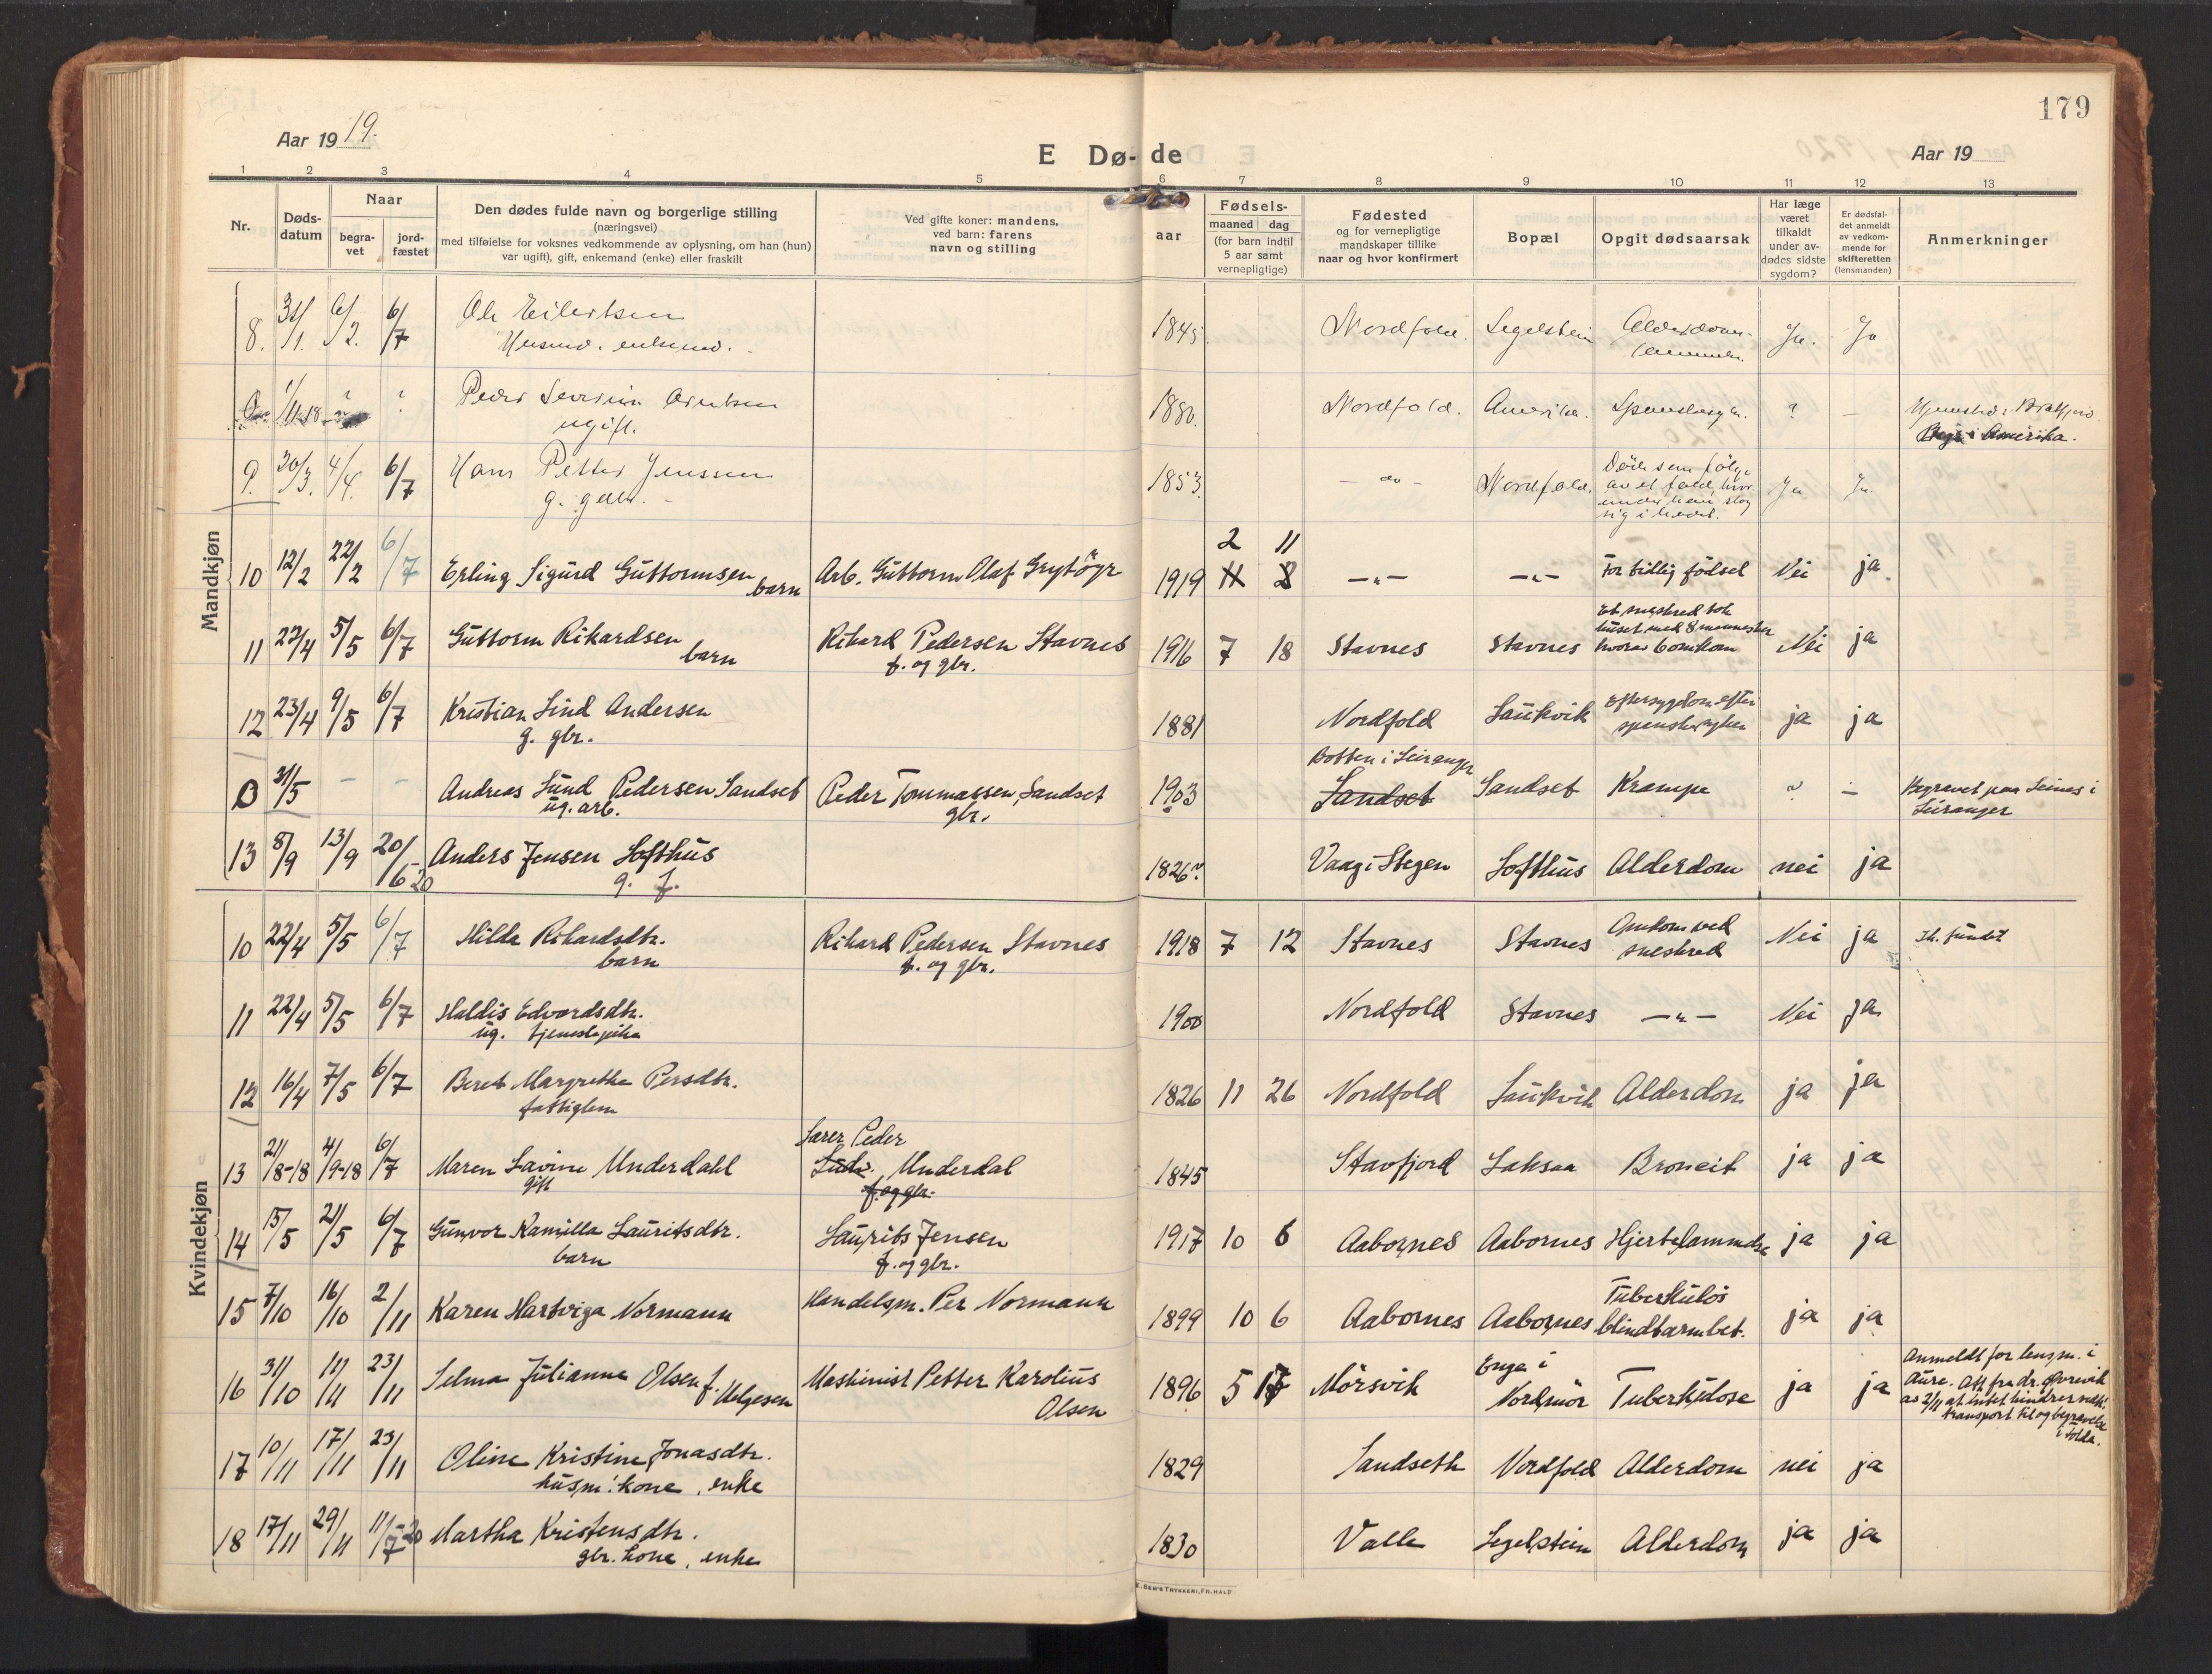 179
Aar 1919.
E Dø- de
Aar 19
1 2 3 4 5 6 7 8 9 10 11 12 13
Nr.
Døds-
datum
Naar
begra-
vet
jord-
fæstet
Den dødes fulde navn og borgerlige stilling
(næringsvei)
med tilføielse for voksnes vedkommende av oplysning, om han (hun)
var ugift), gift, enkemand (enke) eller fraskilt
Ved gifte koner: mandens,
ved barn: farens
navn og stilling
Fødsels-
aar
maaned dag
(for barn indtil
5 aar samt
vernepligtige)
Fødested
og for vernepligtige
mandskaper tillike
naar og hvor konfirmert
Bopæl
Opgit dødsaarsak
Har læge
været
tilkaldt
under av-
dødes sidste
sygdom?
Er dødsfal-
det anmeldt
av vedkom-
mende for
skifteretten
(lensmanden)
Anmerkninger
Mandkjøn
8. 31/1. 6/2. 6/7 Ole Eilertsen 1845. Nordfold. Segelstein Alderdoms- Ja. Ja
Husmd. enkemd.
0 1/11-18 ? ? Peder Severin 1880. Nordfold. Amerika. Spanskesyke. ? —
ugift.
i Amerika.
9. 30/3. 4/4. 6/7 Hans Petter Jenssen 1853. – do – Nordfold. Døde som følge
av et fald, hvor-
under han slog
sig i hodet. Ja Ja
g. gdbr. -
2 11
10 12/2 22/2 6/7 Erling Sigurd Guttormsen barn Arb. Guttorm Olaf Grytöyr 1919 11 8 —"— —"— For tidlig födsel Nei ja
11 22/4 5/5 6/7 Guttorm Rikardsen barn Rikard Pedersen Stavnes
f. og gbr. 1916 7 18 Stavnes Stavnes Et sneskred tok
huset med 8 mennesker
hvorav 6 omkom Nei ja
12 23/4 9/5 6/7 Kristian Lund Andersen
g. gbr. 1881 Nordfold Laukvik Eftersygdom efter
spanskesyken ja ja
0 31/5 – – Andreas Lund Pedersen Sandset
ug. arb. Peder Tommassen, Sandset
gbr. 1903 Botten i Leiranger
Sandset Sandset Krampe ? – Begravet paa Leines i
Leiranger
13 8/9 13/9 20/6-20 Anders Jensen Lofthus
g. f. 1826. Vaag i Stegen Lofthus Alderdom nei ja
Kvindekjøn
10 22/4 5/5 6/7 Hilda Rikardsdtr.
barn Rikard Pedersen Stavnes
f. og gbr. 1918 7 12 Stavnes Stavnes Omkom ved
sneskred Nei ja Ik. fundet
11 22/4 5/5 6/7 Haldis Edvardsdtr.
ug. tjenestepike 1900 Nordfold Stavnes —"— Nei ja
12 16/4 7/5 6/7 Beret Margrethe Persdtr.
fattiglem 1826 11 26 Nordfold Laukvik Alderdom ja ja
13 21/8-18 4/9-18 6/7 Maren Lavine Underdahl
gift Lærer Peder
Underdal
f. og gbr. 1845 Stavfjord Laksaa Bronkit ja ja
14 15/5 21/5 6/7 Gunvor Kamilla Lauritsdtr.
barn Laurits Jensen
f. og gbr. 1917 10 6 Aabornes Aabornes Hjertelammelse ja ja
15 7/10 16/10 2/11 Karen Hartviga Normann Handelsm. Per Normann 1899 10 6 Aabornes Aabornes Tuberkulös
blindtarmbet. ja ja
16 31/10 11/11 23/11 Selma Julianne Olsen f. Helgesen Maskinist Petter Karolius
Olsen 1896 5 Mörsvik Enge i
Nordmör Tuberkulose ja ja Anmeldt for lensm. i
Aure. Att. fra dr. Övrevik
av 2/11 at intet hindrer
transport til og begravelse
i Folda.
17 10/11 17/11 23/11 Oline Kristine Jonasdtr.
husm. kone, enke 1829 Sandseth Nordfold Alderdom nei ja
18 17/11 29/11 11/7-20 Martha Kristensdtr.
gbr. kone, enke 1830 Valle Segelstein Alderdom ja ja